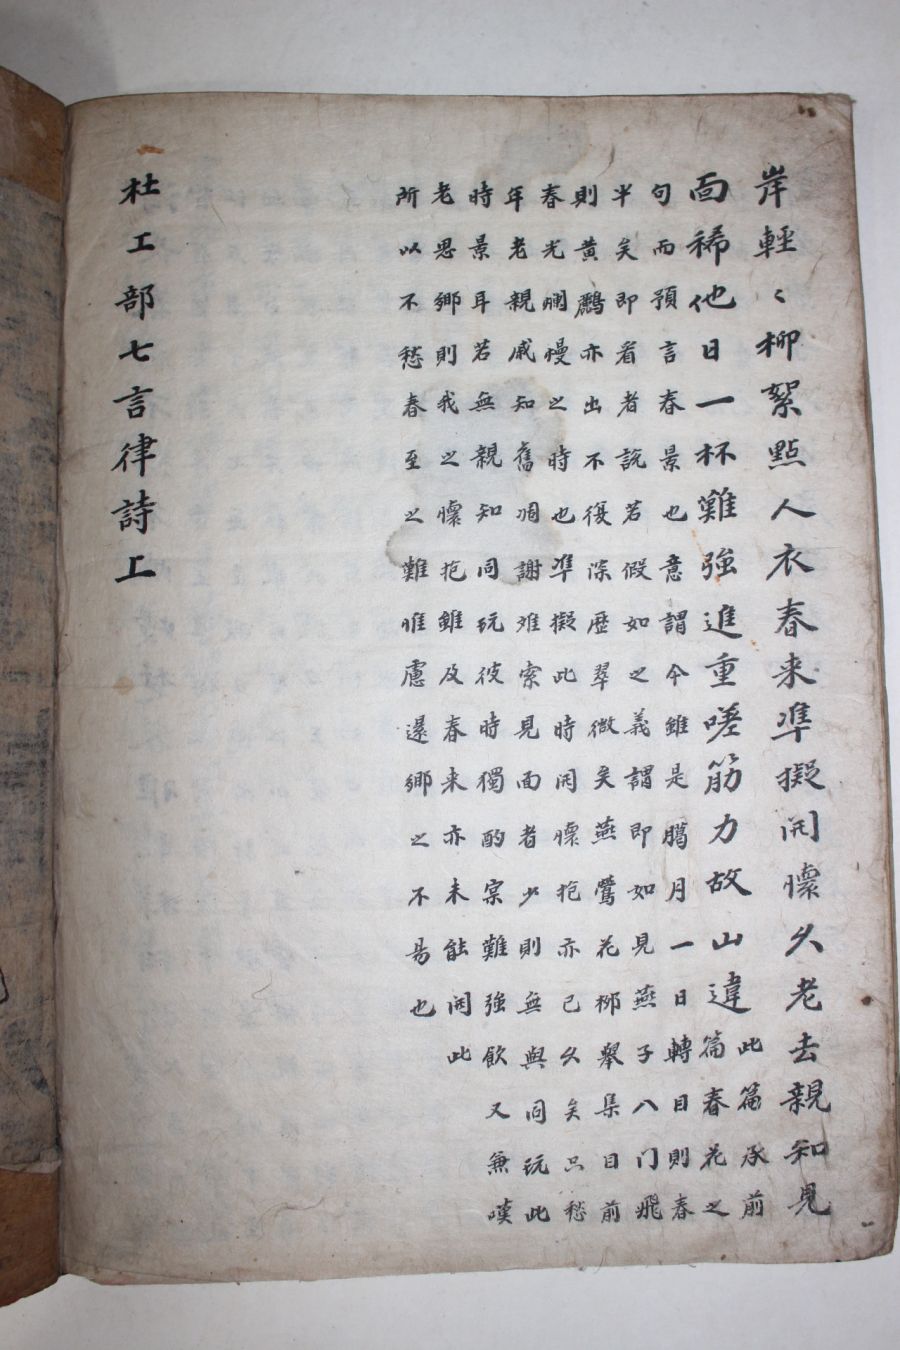 岸輕〻柳絮點人衣春来準擬開懷久老去親知見
面稀他日一杯難強進重嗟筋力故山違
此篇承前
篇春花之
句而預言春景也意謂今雖是臘月一日轉日則春
半矣即看者說若假如之義謂即如見燕子入门飛
則黄鸝亦出不復深歷翠微矣燕鶯花柳舉集目前
春光爛慢之時也準擬此時開懷抱亦已久矣只愁
年老親戚知舊凋謝难索見面者少則無與同玩此
時景耳若無親知同玩彼時獨酌難強飲又兼嘆
老思鄉則我之懷抱雖及春来亦未能開此
所以不愁春至之難惟慮還鄉之不易也
杜工部七言律詩上